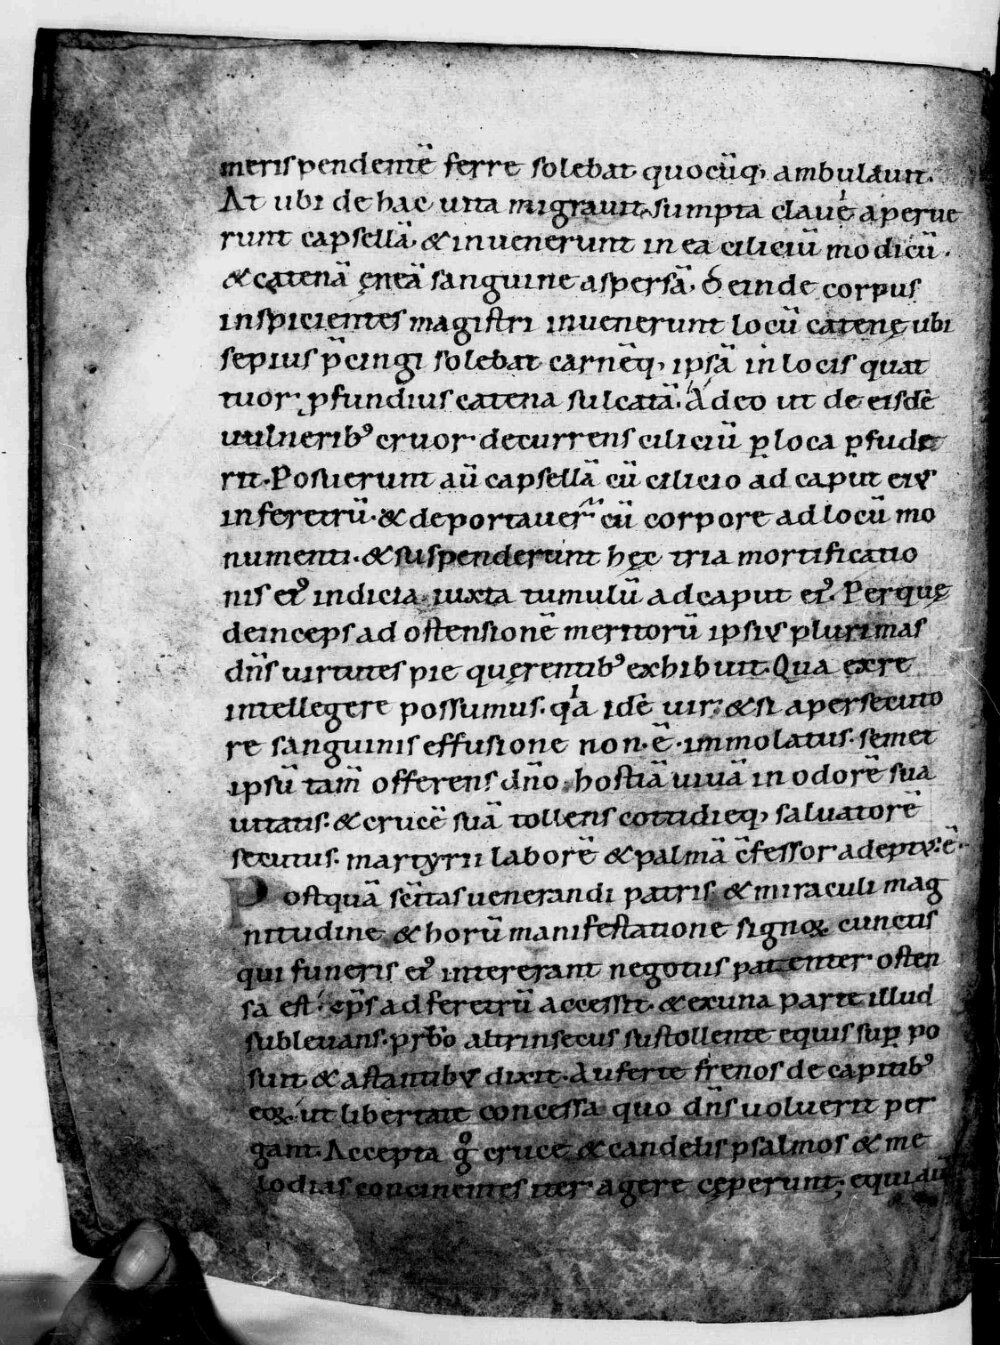 merispendentē ferre solebat quocūq; ambulauit.
At ubi de hac uita migrauit. sumpta clauē aperue
runt capsellā. & inuenerunt in ea ciliciū modicū.
& catenā ęneā sanguine aspersā. Deinde corpus
inspicientes magistri inuenerunt locū catenę ubi
sepius p̄cingi solebat carnēq; ipsā in locis quat
tuor ꝓfundius catena sulcatā. Adeo ut de eisdē
uulnerib᾿ cruor decurrens ciliciū ꝑ loca ꝑfude
rit. Posuerunt aū capsellā cū cilicio ad caput eiꝰ
in feretrū. & deportauer̄ cū corpore ad locū mo
numenti. & suspenderunt hęc tria mortificatio
nis ei᾿ indicia iuxta tumulū ad caput ei᾿. Per quę
deinceps ad ostensionē meritorū ipsiꝰ plurimas
dn̄s uirtutes pie quęrentib᾿ exhibuit. Qua ex re
intellegere possumus. qͥa idē uir. & si a persecuto
re sanguinis effusione non. ē. immolatus. semet
ipsū tam̄ offerens dn̄o hostiā uiuā in odorē sua
uitatis. & crucē suā tollens cottidieq; saluatorē
secutus. martyrii laborē & palmā c̄fessor adeptꝰ. ē.
Postquā sc̄itas uenerandi patris & miraculi mag
nitudine & horū manifestatione signoꝝ cunctis
qui funeris ei᾿ intererant negotiis patenter osten
sa est. ep̄s ad feretrū accessit. & ex una parte illud
subleuans. prb̄o altrinsecus sustollente equis suꝑ po
suit & astantibꝰ dixit. Auferte frenos de capitib᾿
eoꝝ. ut libertate concessa quo dn̄s uoluerit per
gant. Accepta gͦ cruce & candelis psalmos & me
lodias concinentes iter agere cęperunt; equi aū